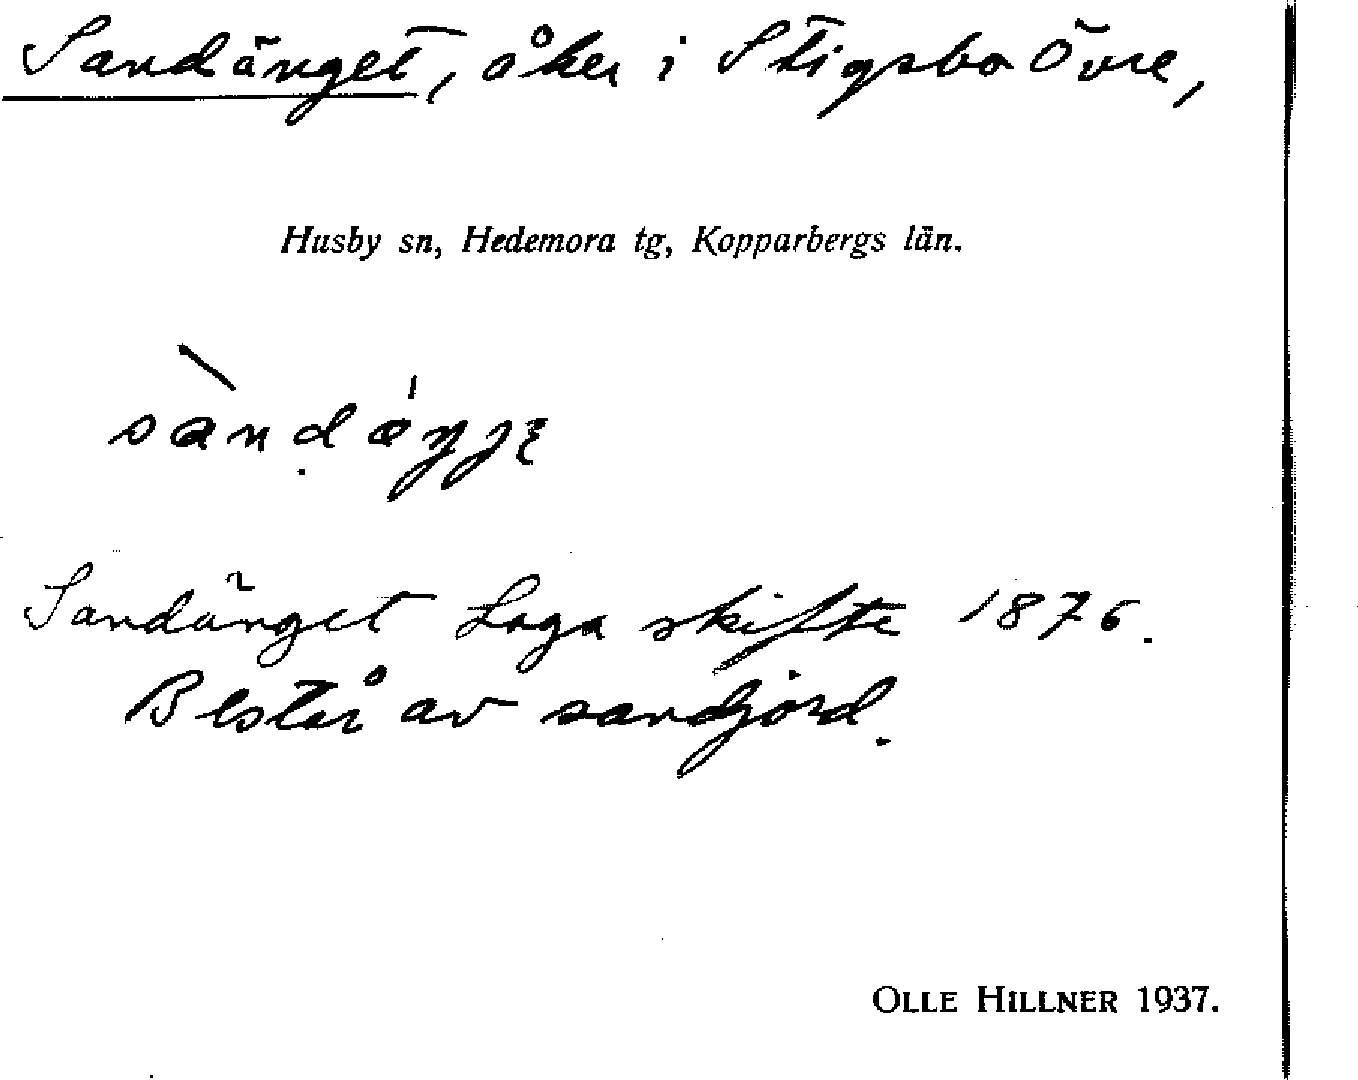 Sandänget, åker i Stigsbo Övre,
Husby sn, Hedemora tg, Kopparbergs län.
Sandänget Laga skifte 1876.
Består av sandjord.
OLLE HILLNER 1937.